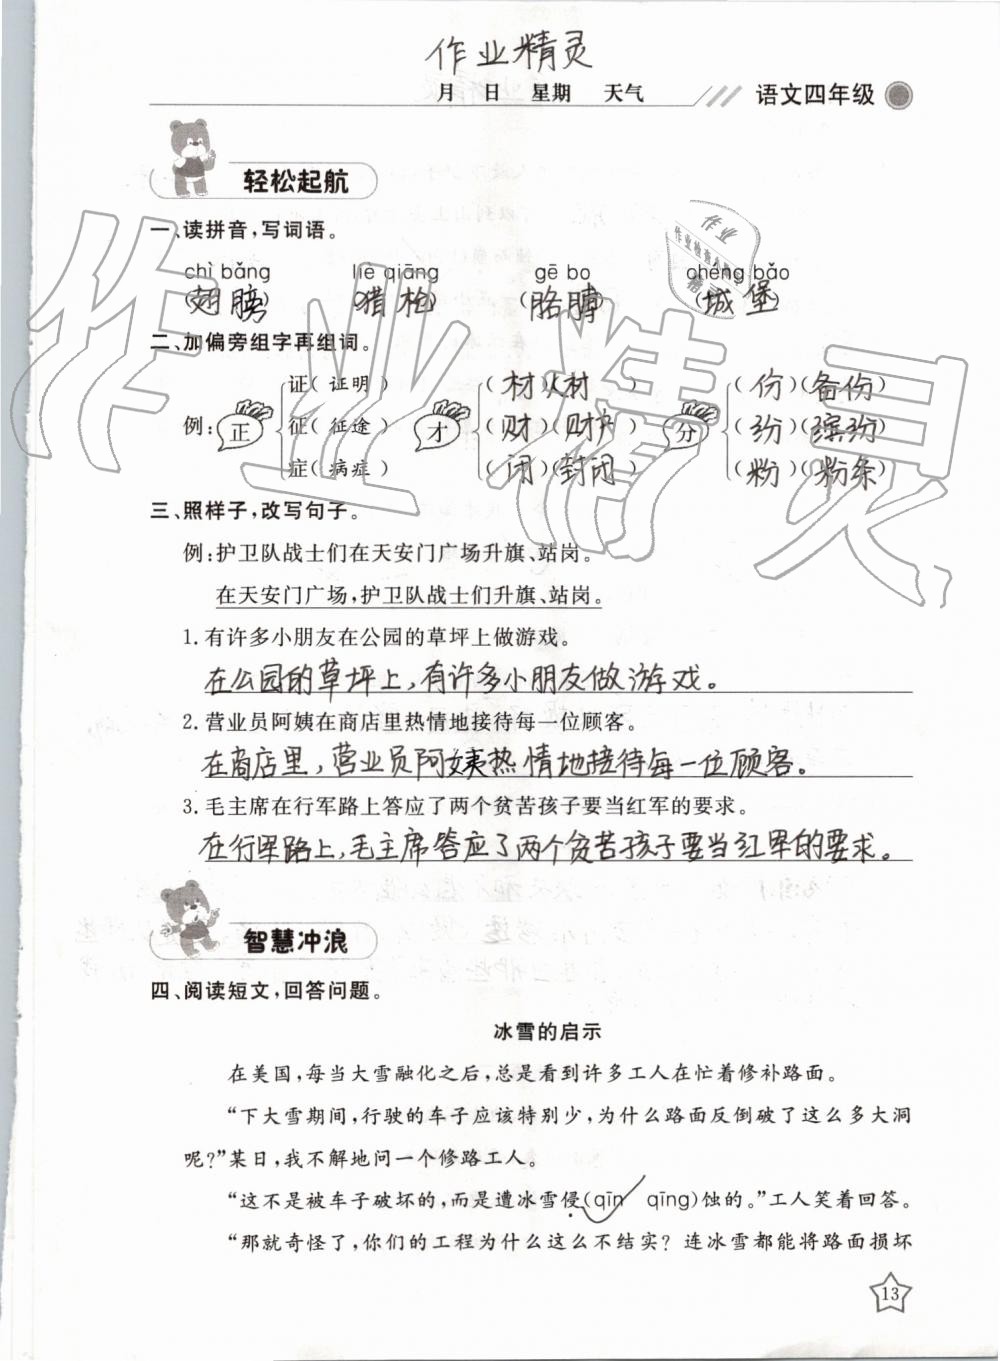 作业精灵
月 日 星期 天气 语文四年级
轻松起航
一、读拼音,写词语。
chì bǎng liè qiāng gē bo chéng bǎo
(翅膀) (猎枪) (胳膊) (城堡)
二、加偏旁组字再组词。
证(证明) (材)(人材) (份)(备份)
例:正 征(征途) 才 (财)(财户) 分 (纷)(缤纷)
症(病症) (闭)(封闭) (粉)(粉条)
三、照样子,改写句子。
例:护卫队战士们在天安门广场升旗、站岗。
在天安门广场,护卫队战士们升旗、站岗。
1. 有许多小朋友在公园的草坪上做游戏。
在公园的草坪上,有许多小朋友做游戏。
2. 营业员阿姨在商店里热情地接待每一位顾客。
在商店里,营业员阿姨热情地接待每一位顾客。
3. 毛主席在行军路上答应了两个贫苦孩子要当红军的要求。
在行军路上,毛主席答应了两个贫苦孩子要当红军的要求。
智慧冲浪
四、阅读短文,回答问题。
冰雪的启示
在美国,每当大雪融化之后,总是看到许多工人在忙着修补路面。
“下大雪期间,行驶的车子应该特别少,为什么路面反倒破了这么多大洞
呢?”某日,我不解地问一个修路工人。
“这不是被车子破坏的,而是遭冰雪侵(qīn✓ qīng)蚀的。”工人笑着回答。
“那就奇怪了,你们的工程为什么这么不结实?连冰雪都能将路面损坏
13
作业精灵